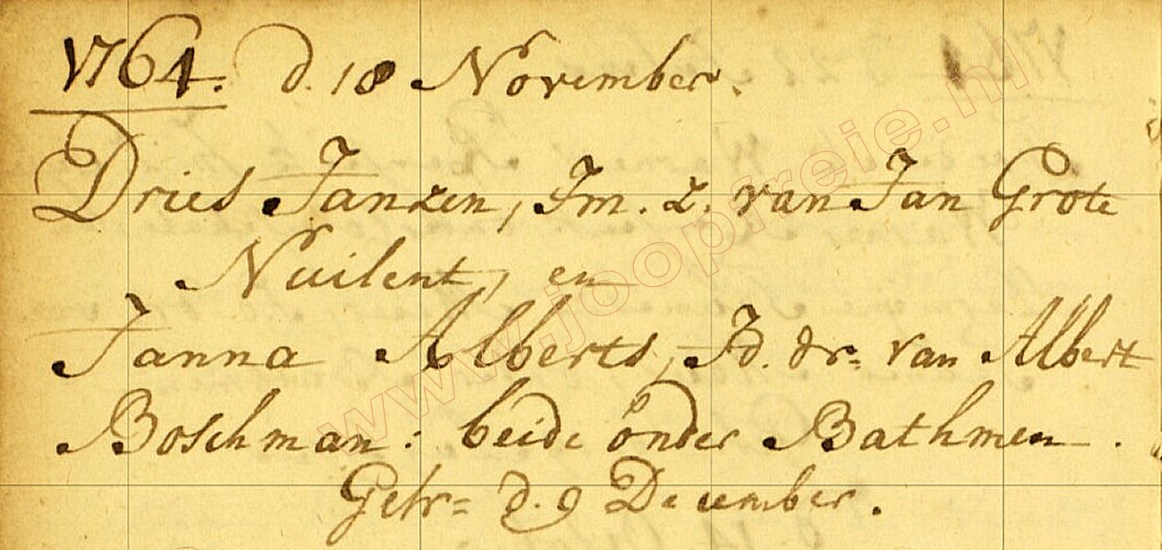 1764. d. 18 November.
Dries Janzen, Jm. z. van Jan Grote
Nuilent, en
Janna Alberts, Jd. dr= van Albert
Boschman: beide onder Bathmen.
Getr= d. 9 December.
www.joopreie.nl